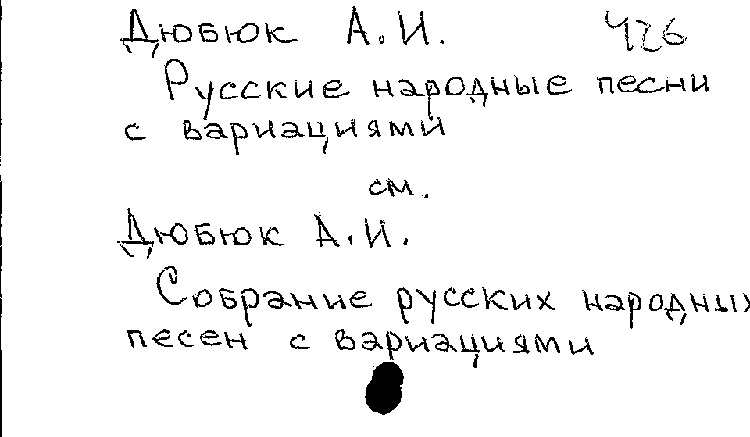 Дюбюк А.И. 426
Русские народные песни
с вариациями
см.
Дюбюк А.И.
Собрание русских народны
песен с вариациями